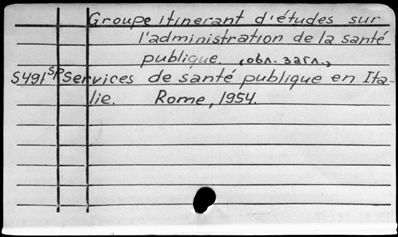 Groupe itinerant d'études sur
l'administration de la santé
publique. (обл. загл.,
S491SP Services de santé publique en Ita-
lie. Rome, 1954.